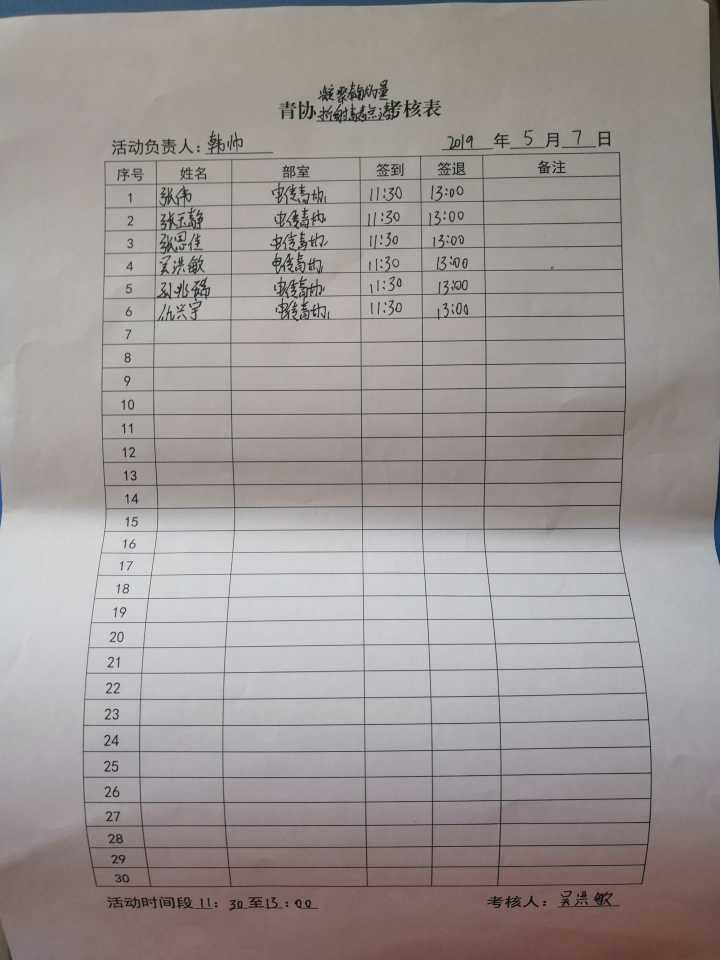 凝聚青商力量
青协折射青春活考核表
活动负责人：韩帅 2019年5月7日
序号 姓名 部室 签到 签退 备注
1 张伟 电信青协 11:30 13:00
2 张玉静 电信青协 11:30 13:00
3 张思佳 电信青协 11:30 13:00
4 吴洪敏 电信青协 11:30 13:00
5 孙兆瑞 电信青协 11:30 13:00
6 仇兴宇 电信青协 11:30 13:00
7
8
9
10
11
12
13
14
15
16
17
18
19
20
21
22
23
24
25
26
27
28
29
30
活动时间段11：30至13：00 考核人：吴洪敏